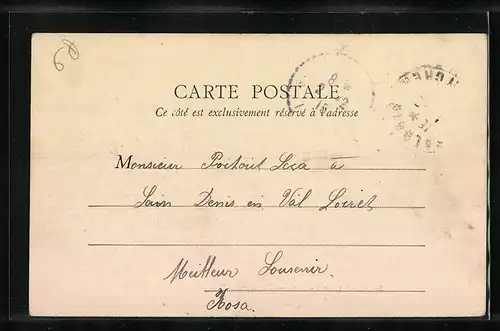 68
CARTE POSTALE
Ce côté est exclusivement réservé à l'adresse
Monsieur Poitout à
Denis en Val Loiret
Meilleur Souvenir.
Rosa.